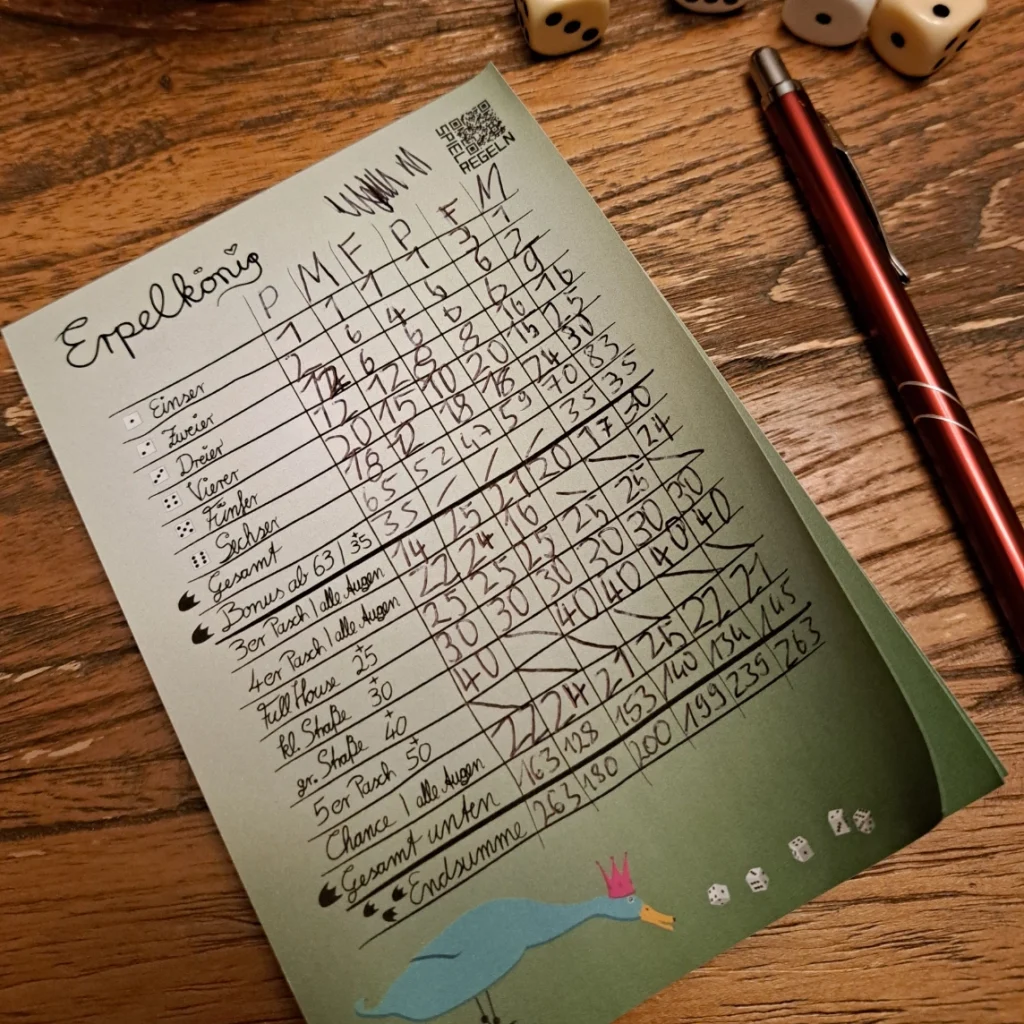 SPIEL
REGELN
Erpelkönig
P M F P F M
Einser 1 1 1 1 3 1
Zweier 2 6 4 6 6 2
Dreier 12 6 6 6 6 9
Vierer 12 12 8 8 16 16
Fünfer 20 15 10 20 15 25
Sechser 18 12 18 18 24 30
Gesamt 65 52 47 59 70 83
Bonus ab 63 / 35 35 / / / 35 35
3er Pasch | alle Augen 14 25 21 20 17 30
4er Pasch | alle Augen 22 24 16 — — 24
Full House +25 25 25 25 25 25 —
kl. Straße +30 30 30 30 30 30 30
gr. Straße +40 40 — 40 40 40 40
5er Pasch +50 — — — — — —
Chance | alle Augen 22 24 21 25 22 21
Gesamt unten 163 128 153 140 134 145
Endsumme 263 180 200 199 239 263